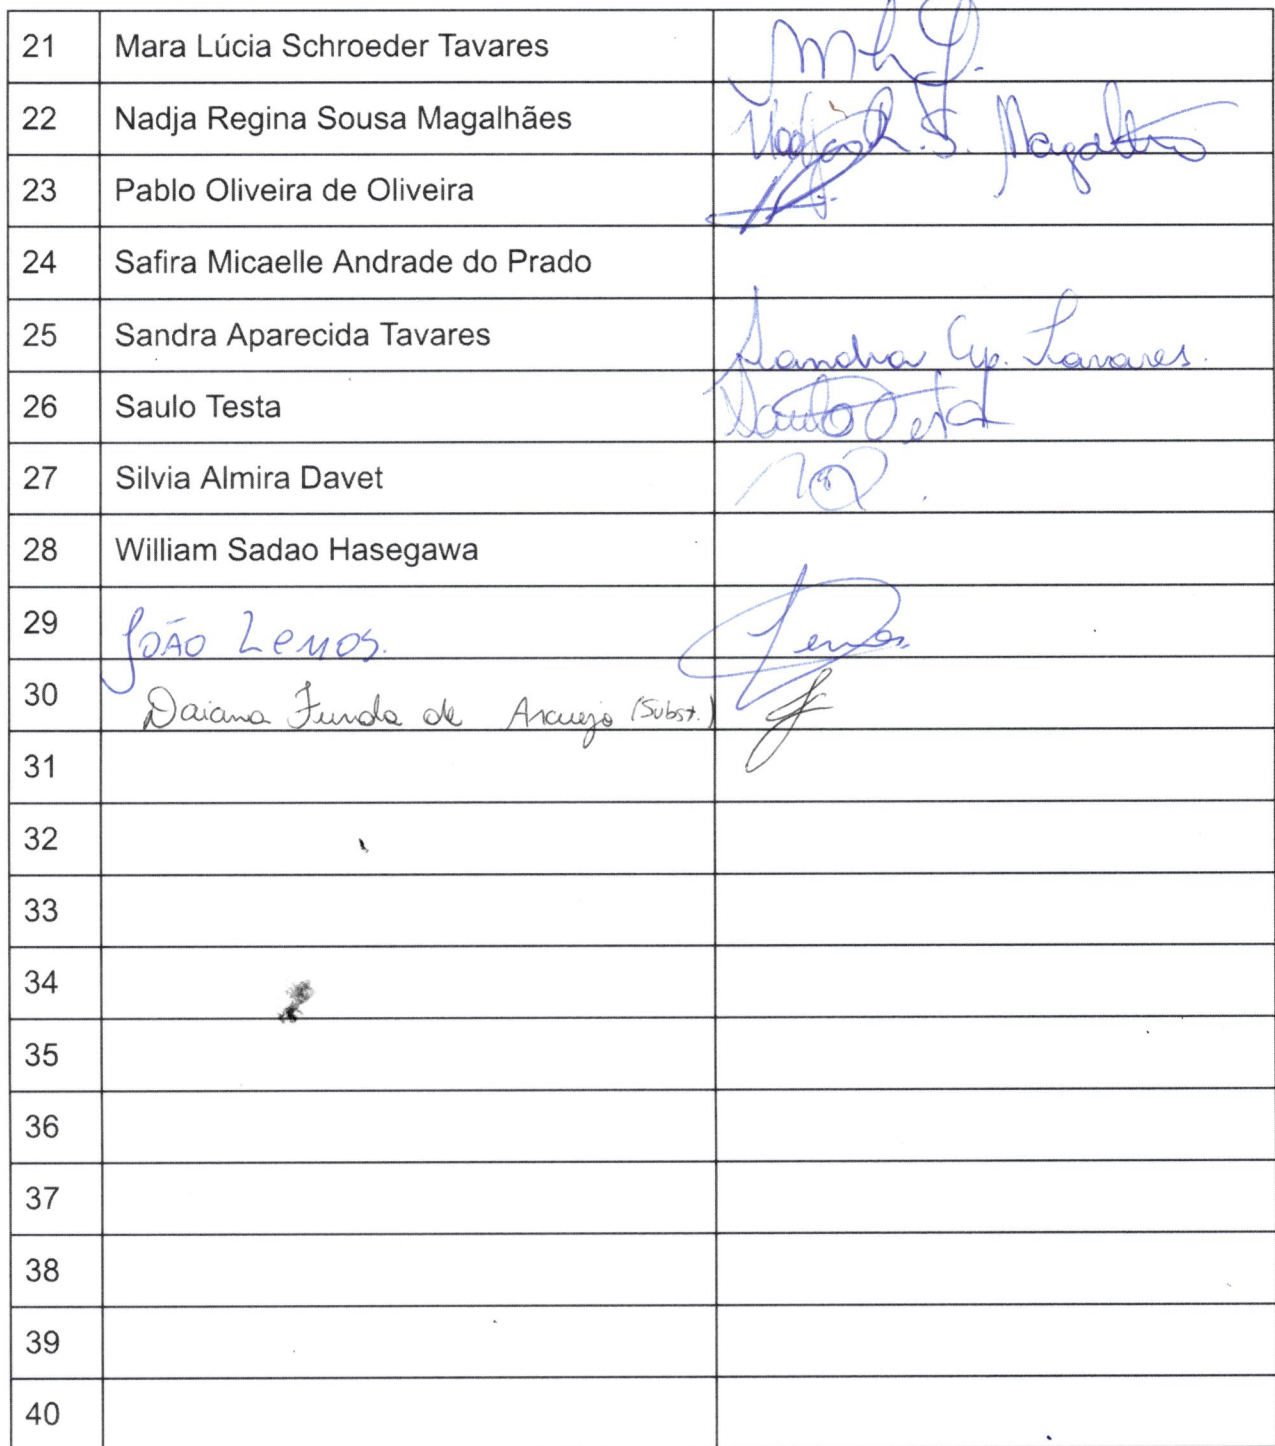 21 Mara Lúcia Schroeder Tavares
22 Nadja Regina Sousa Magalhães Nadja R. S. Magalhães
23 Pablo Oliveira de Oliveira
24 Safira Micaelle Andrade do Prado
25 Sandra Aparecida Tavares Sandra Ap. Tavares.
26 Saulo Testa Saulo Testa
27 Silvia Almira Davet
28 William Sadao Hasegawa
29 João Lemos. Lemos
30 Daiana Funda de Araujo (Subst.)
31
32
33
34
35
36
37
38
39
40